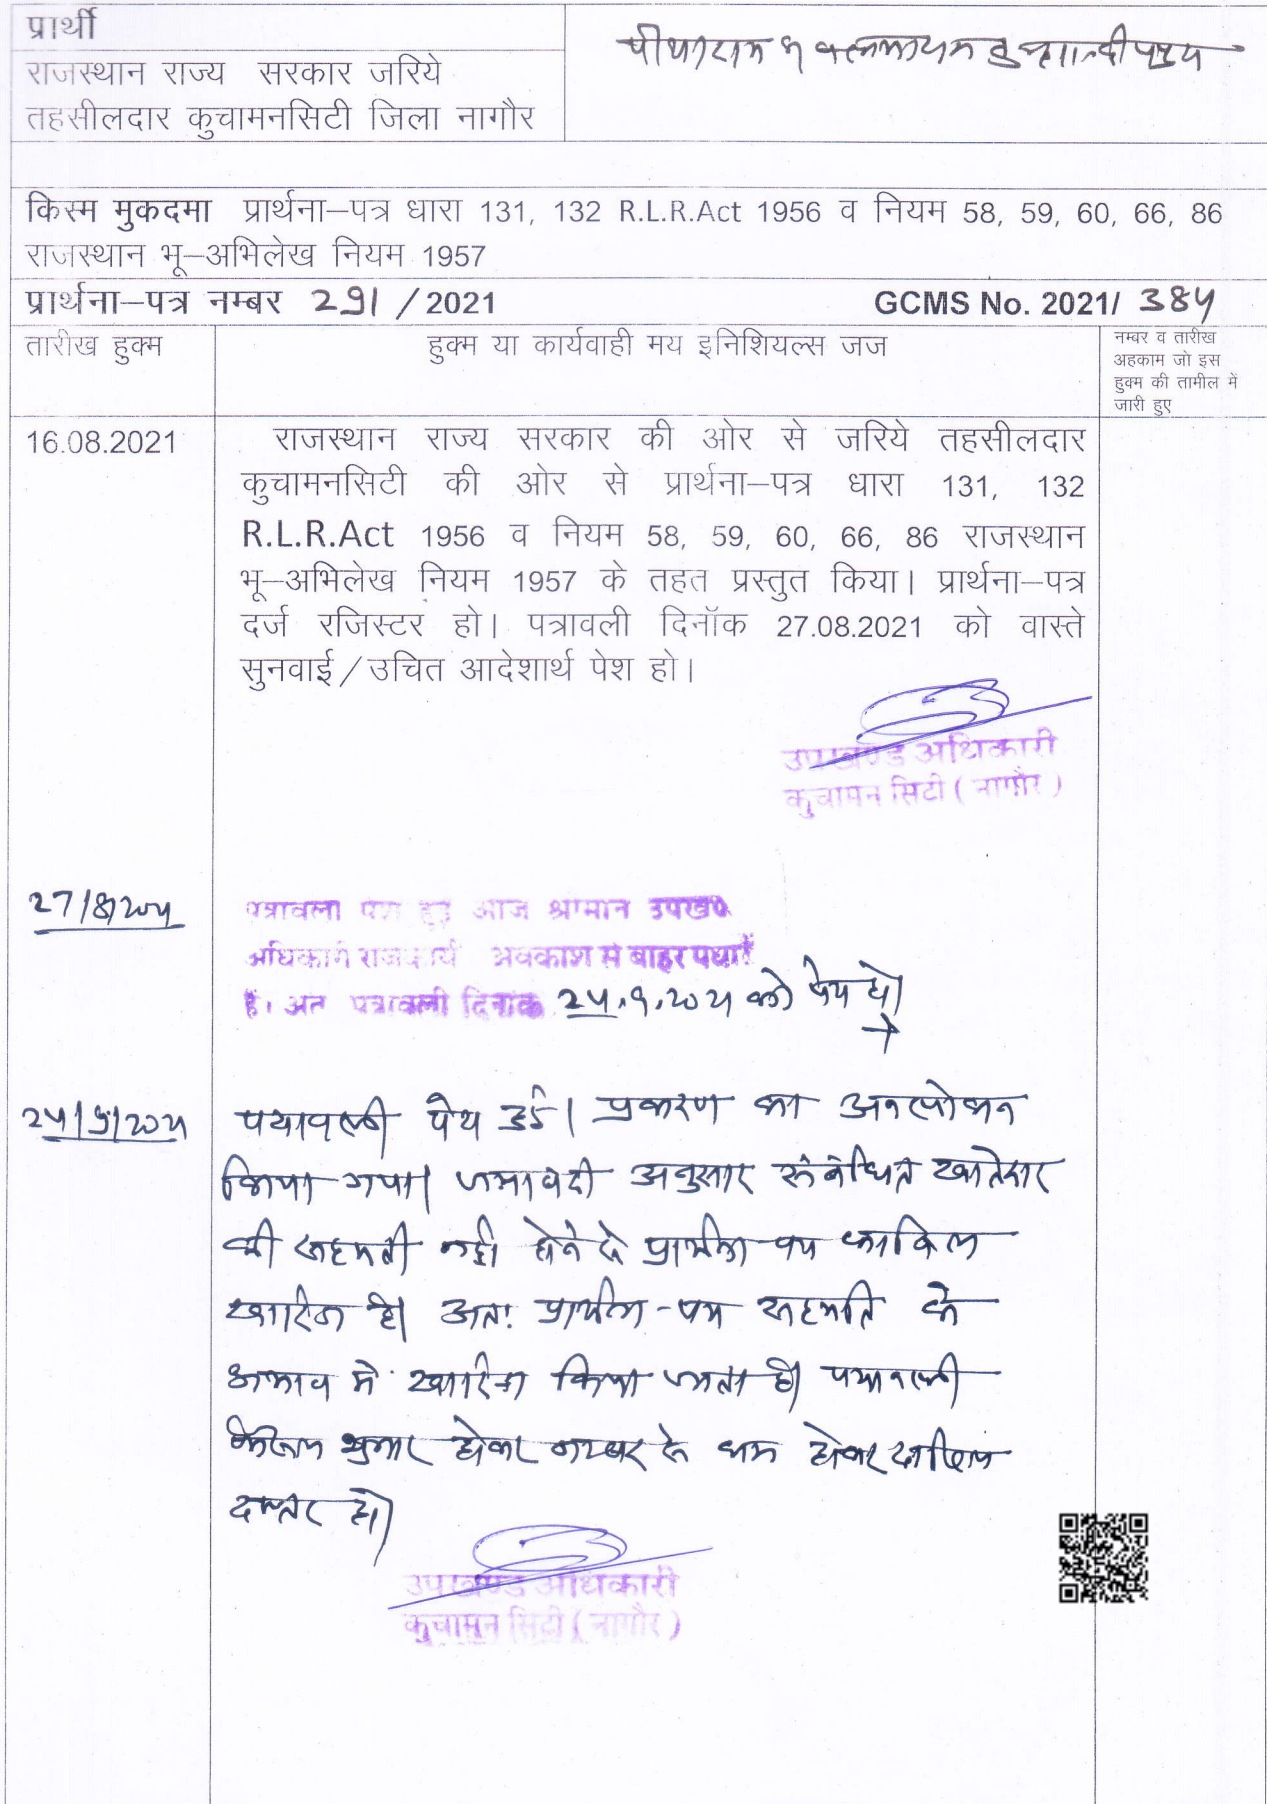 प्रार्थी
राजस्थान राज्य सरकार जरिये
तहसीलदार कुचामनसिटी जिला नागौर
किस्म मुकदमा प्रार्थना–पत्र धारा 131, 132 R.L.R.Act 1956 व नियम 58, 59, 60, 66, 86
राजस्थान भू–अभिलेख नियम 1957
प्रार्थना–पत्र नम्बर 291 / 2021 GCMS No. 2021/ 384
तारीख हुक्म
हुक्म या कार्यवाही मय इनिशियल्स जज
नम्बर व तारीख
अहकाम जो इस
हुक्म की तामील में
जारी हुए
16.08.2021
राजस्थान राज्य सरकार की ओर से जरिये तहसीलदार
कुचामनसिटी की ओर से प्रार्थना–पत्र धारा 131, 132
R.L.R.Act 1956 व नियम 58, 59, 60, 66, 86 राजस्थान
भू–अभिलेख नियम 1957 के तहत प्रस्तुत किया। प्रार्थना–पत्र
दर्ज रजिस्टर हो। पत्रावली दिनॉक 27.08.2021 को वास्ते
सुनवाई/उचित आदेशार्थ पेश हो।
उपखण्ड अधिकारी
कुचामन सिटी ( नागौर )
27/8/2021
पत्रावली पेश हुई आज श्रीमान उपखण्ड
अधिकारी राजकार्य अवकाश से बाहर पधारे
है। अत पत्रावली दिनांक 24.9.2021 को पेश हो।
24/9/2021
पत्रावली पेश हुई। प्रकरण का अवलोकन
किया गया। जमाबंदी अनुसार संबंधित खातेदार
की सहमती नही होने से प्रार्थना पत्र काबिल
खारिज है। अतः प्रार्थना-पत्र सहमति के
अभाव में खारिज किया जाता है। पत्रावली
फैसल शुमार होकर नम्बर से कम होकर दाखिल
दफ्तर हो।
उपखण्ड अधिकारी
कुचामन सिटी ( नागौर )